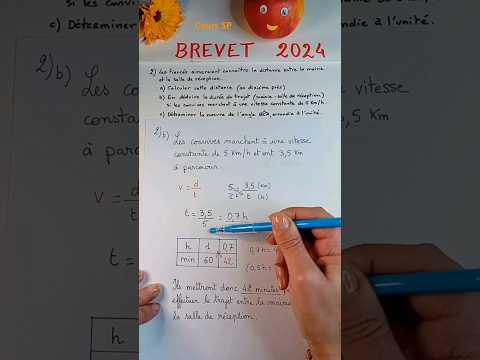 si les convives
c) Déterminer la
Cours SP
ondie à l'unité.
BREVET 2024
2) Les fiancés aimeraient connaître la distance entre la mairie
et la salle de réception.
a) Calculer cette distance (au dixième près)
b) En déduire la durée du trajet (mairie - salle de réception)
si les convives marchent à une vitesse constante de 5 Km/h.
c) Déterminer la mesure de l'angle arrondie à l'unité.
2) b)
Les con
constan
à parc
vitesse
3,5 Km
2) b) Les convives marchent à une vitesse
constante de 5 Km/h et ont 3,5 Km
à parcourir.
v = d/t
3,5 (Km)
t (h)
t = 3,5/5 = 0,7 h
h 1 0,7
min 60 42
0,7h =
(0,5h =
Ils mettront donc 42 minutes
effectuer le trajet entre la mairie
la salle de réception.